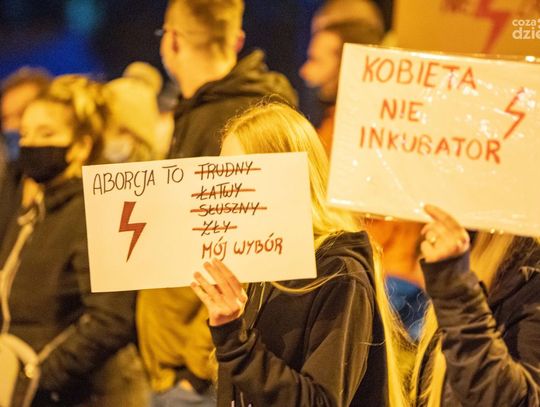 ABORCJA TO
TRUDNY
ŁATWY
SŁUSZNY
ZŁY
MÓJ WYBÓR
KOBIETA
NIE
INKUBATOR
NIE
COZA